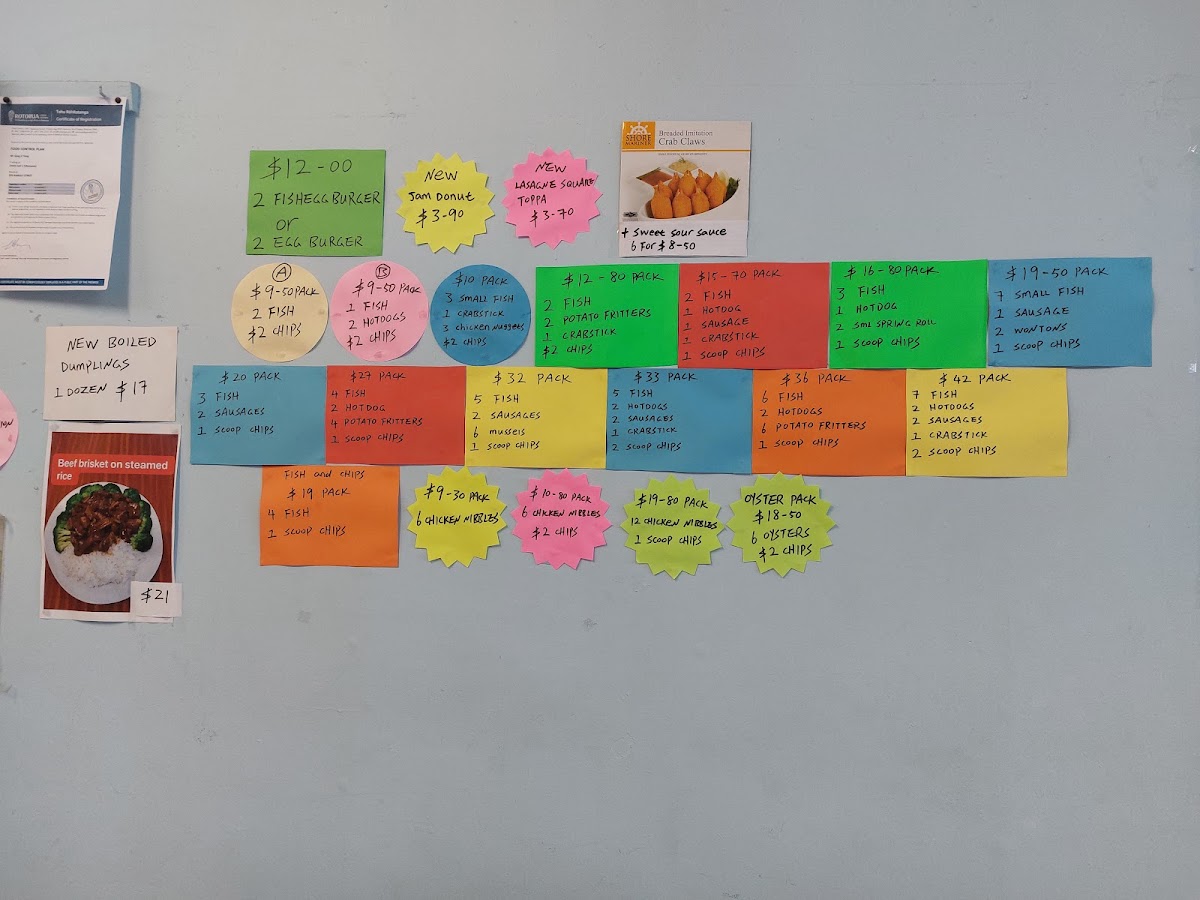 ROTORUA
Certificate of Registration
FOOD CONTROL PLAN
$12-00
2 FISHEGGBURGER
or
2 EGG BURGER
NEW
Jam Donut
$3-90
NEW
LASAGNE SQUARE
TOPPA
$3-70
SHORE
MARINER
Breaded Imitation
Crab Claws
+ Sweet sour sauce
6 For $8-50
A
$9-50PACK
2 FISH
$2 CHIPS
B
$9-50PACK
1 FISH
2 HOTDOGS
$2 CHIPS
$10 PACK
3 SMALL FISH
1 CRABSTICK
3 chicken nuggets
$2 CHIPS
$12-80 PACK
2 FISH
2 POTATO FRITTERS
1 CRABSTICK
$2 CHIPS
$15-70 PACK
2 FISH
1 HOTDOG
1 SAUSAGE
1 CRABSTICK
1 SCOOP CHIPS
$16-80 PACK
3 FISH
1 HOTDOG
2 SML SPRING ROLL
1 SCOOP CHIPS
$19-50 PACK
7 SMALL FISH
1 SAUSAGE
2 WONTONS
1 SCOOP CHIPS
NEW BOILED
DUMPLINGS
1 DOZEN $17
$20 PACK
3 FISH
2 SAUSAGES
1 SCOOP CHIPS
$27 PACK
4 FISH
2 HOTDOG
4 POTATO FRITTERS
1 SCOOP CHIPS
$32 PACK
5 FISH
2 SAUSAGES
6 mussels
1 SCOOP CHIPS
$33 PACK
5 FISH
2 HOTDOGS
2 SAUSAGES
1 CRABSTICK
2 SCOOP CHIPS
$36 PACK
6 FISH
2 HOTDOGS
6 POTATO FRITTERS
1 SCOOP CHIPS
$42 PACK
7 FISH
2 HOTDOGS
2 SAUSAGES
1 CRABSTICK
2 SCOOP CHIPS
Beef brisket on steamed
rice
$21
FISH and CHIPS
$19 PACK
4 FISH
1 SCOOP CHIPS
$9-30 PACK
6 CHICKEN NIBBLES
$10-80 PACK
6 CHICKEN NIBBLES
$2 CHIPS
$19-80 PACK
12 CHICKEN NIBBLES
1 SCOOP CHIPS
OYSTER PACK
$18-50
6 OYSTERS
$2 CHIPS